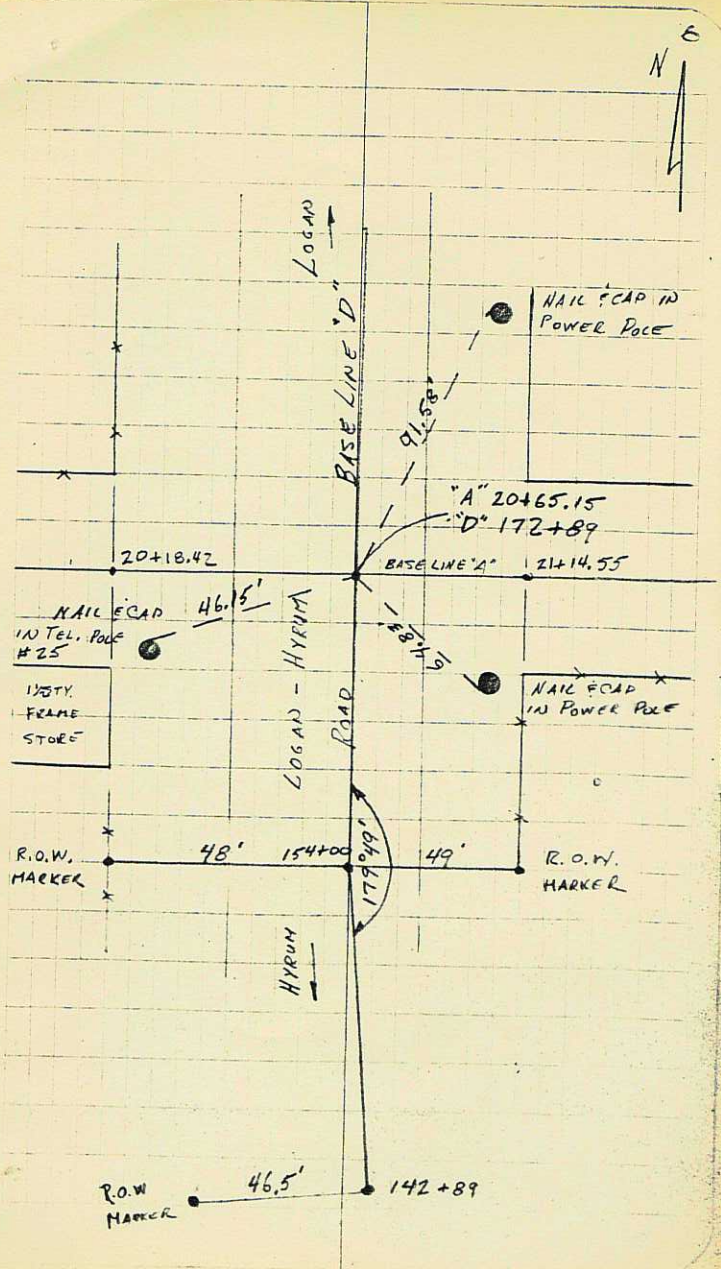 6
N
LOGAN
BASE LINE "D"
NAIL & CAP IN
POWER POLE
91.58'
"A" 20+65.15
"D" 172+89
20+18.42
BASE LINE "A"
21+14.55
NAIL & CAP
IN TEL. POLE
#25
46.15'
64.83'
NAIL & CAP
IN POWER POLE
1½ STY.
FRAME
STORE
LOGAN - HYRUM
ROAD
R.O.W.
MARKER
48'
154+00
179°49'
49'
R.O.W.
MARKER
HYRUM
R.O.W
MARKER
46.5'
142+89